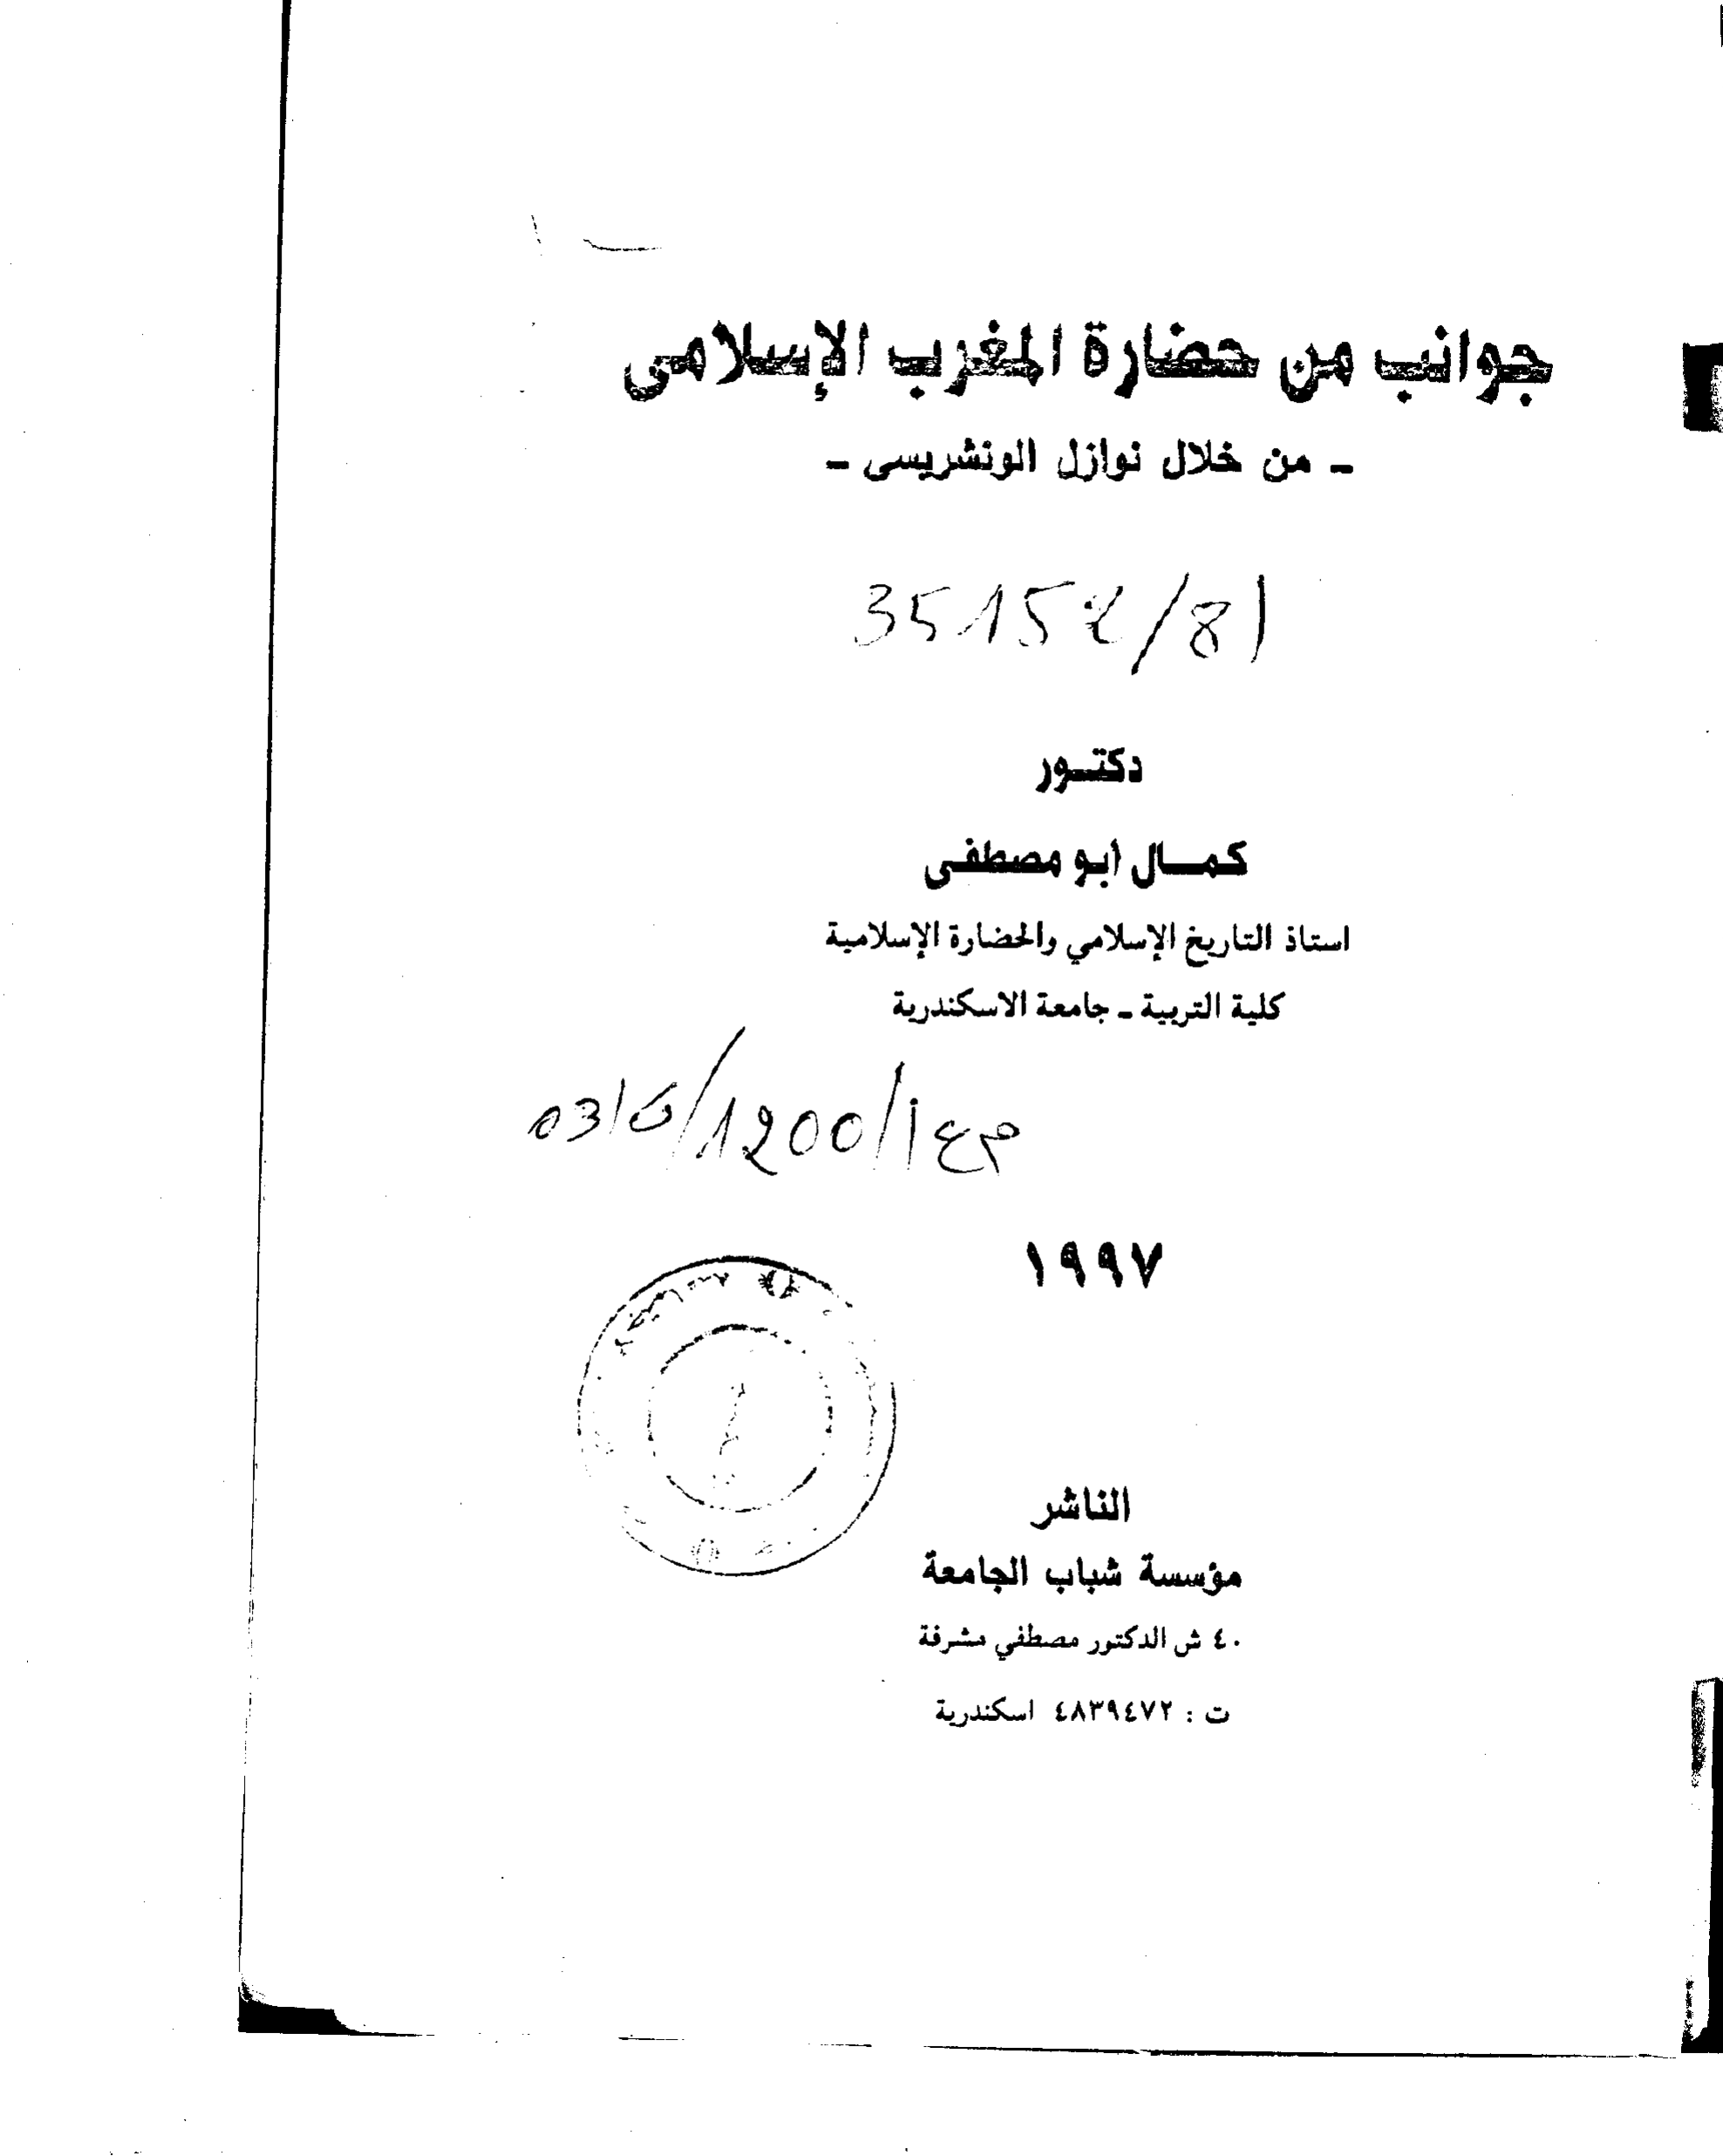 جوانب من حضارة المغرب الإسلامى
ـ من خلال نوازل الونشريسى ـ
3515٤/81
دكتـور
كمـال أبو مصطفى
استاذ التاريخ الإسلامي والحضارة الإسلامية
كلية التربية ـ جامعة الاسكندرية
1200/
١٩٩٧
الناشر
مؤسسة شباب الجامعة
٤٠ ش الدكتور مصطفي مشرفة
ت : ٤٨٣٩٤٧٢ اسكندرية